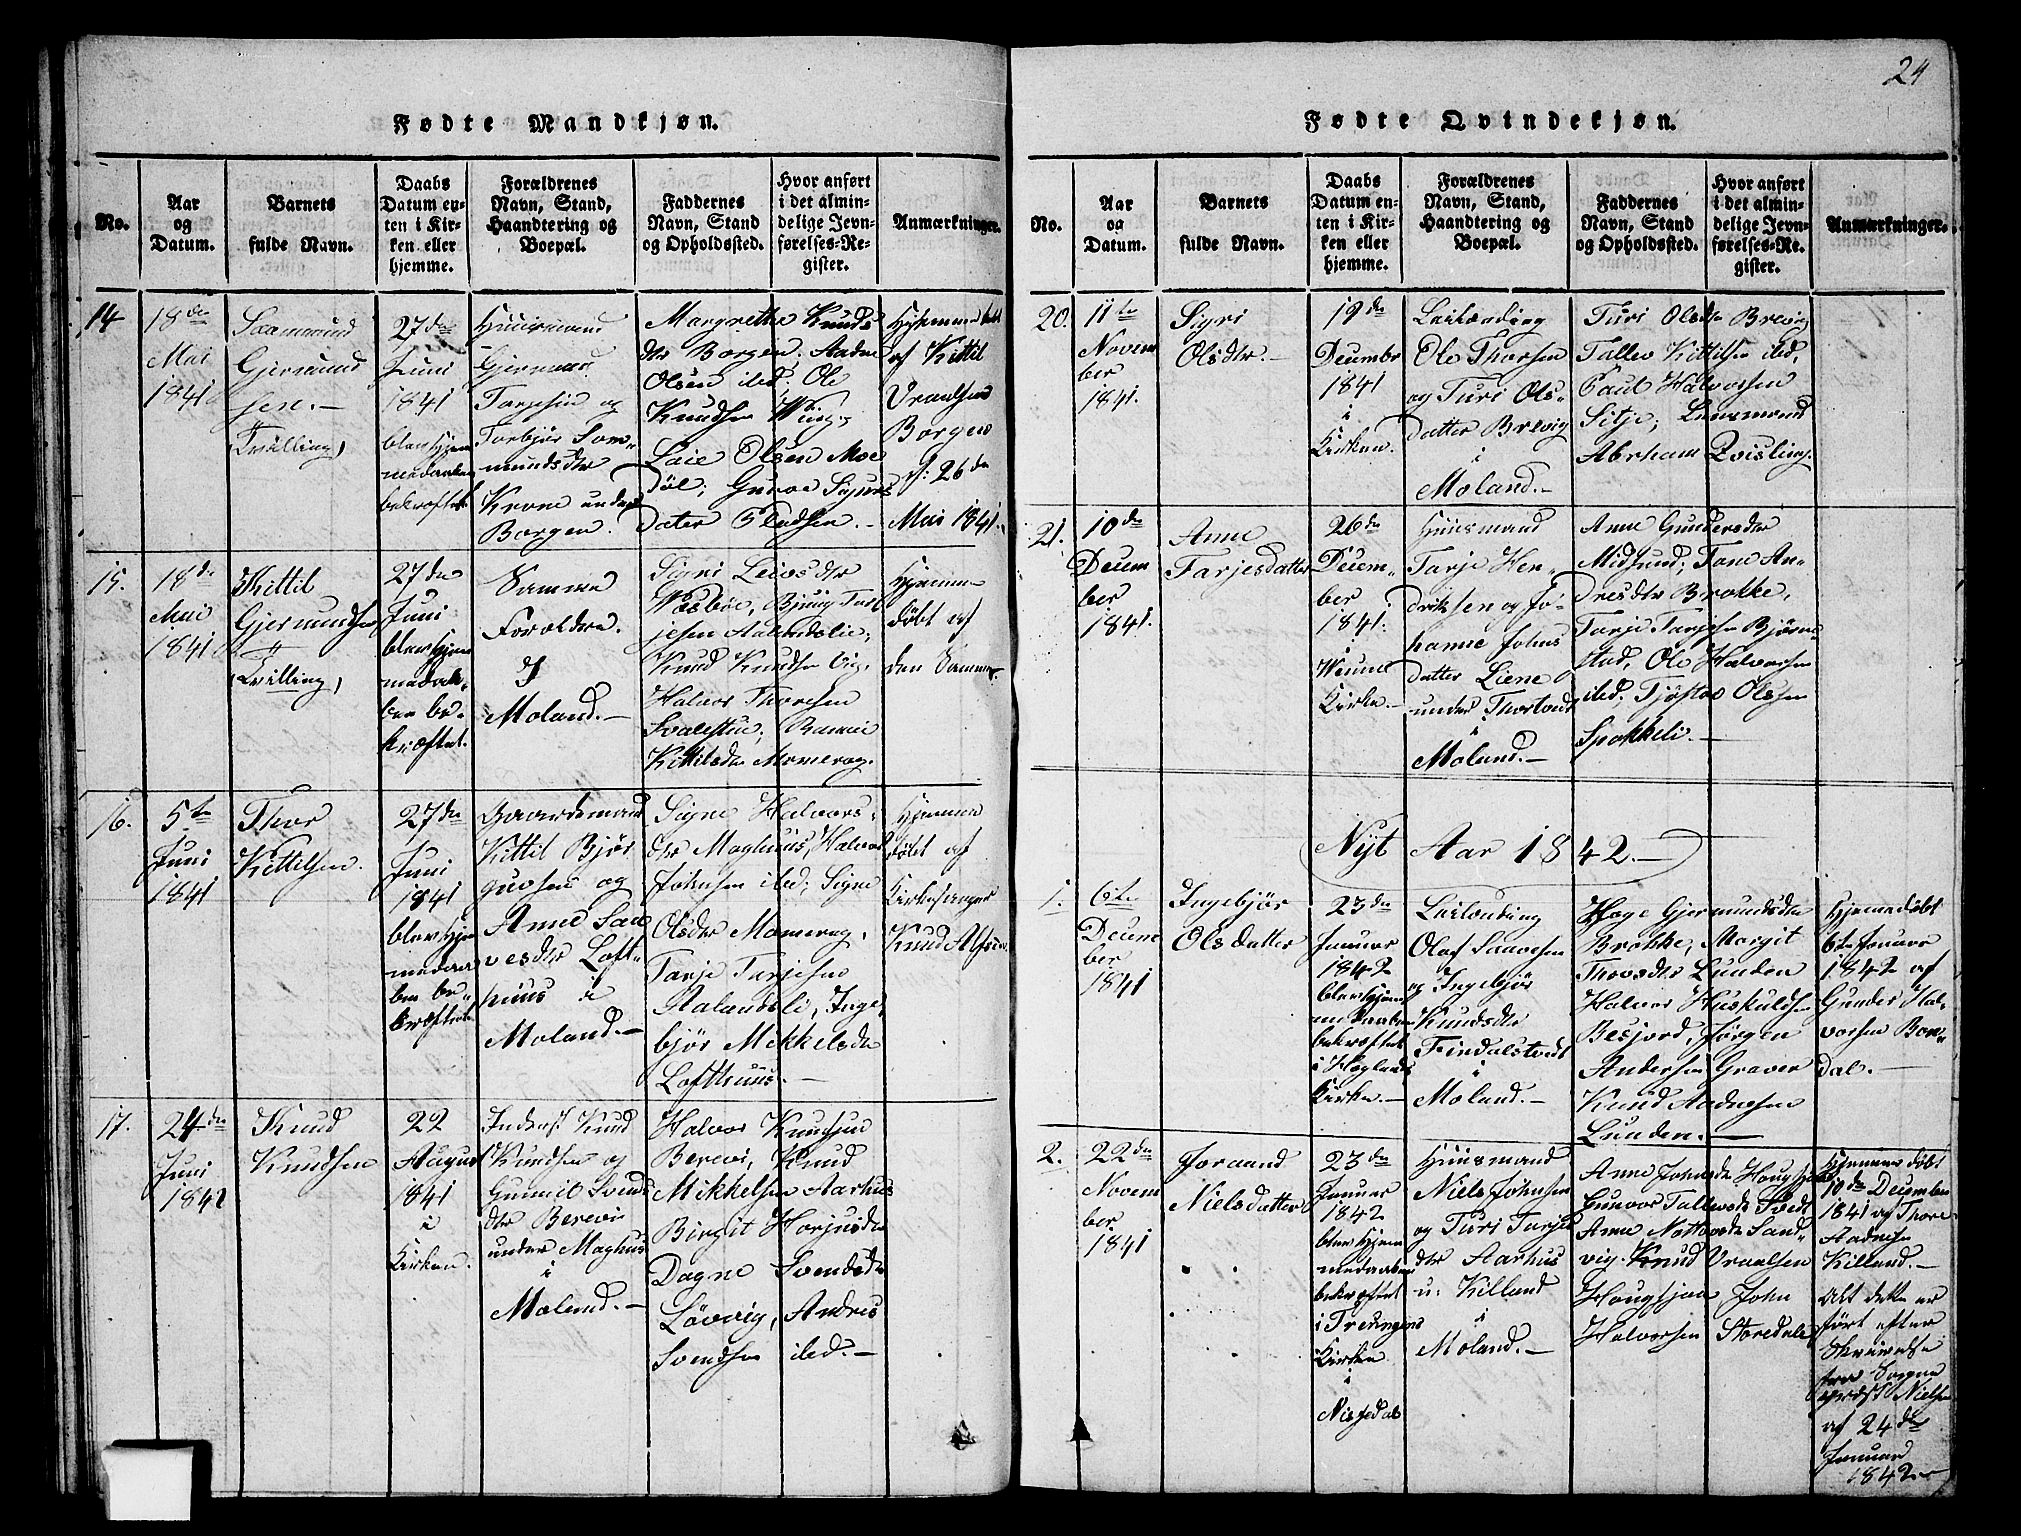 24
Fødte Mandkjøn.
No.
Aar
og
Datum.
Barnets
fulde Navn.
Daabs
Datum en-
ten i Kir-
ken eller
hjemme.
Forældrenes
Navn, Stand,
Haandtering og
Boepæl.
Faddernes
Navn, Stand
og Opholdssted.
Hvor anført
i det almin-
delige Jevn-
førelses-Re-
gister.
Anmærkninger.
14
18de
Mai
1841
Gjermund
sen.-
(Tvilling)
27de
Juni
1841
blev hjem
medaaben
bekræftet
Huusmand
Gjermund
Tarjesen og
Torbjør Som-
mundsdtr
Krone under
Borgen.
Margrethe Knuds
dtr Borgen, Aadne
Olsen ibd; Ole
Knudsen
Olsen Moe
døl; Gunvor Sigurs
dater
Hjemme døbt
af Kittil
Vraalsen
Borgen
d: 26de
Mai 1841.
15.
18de
Mai
1841
Kittil
Gjermundsen
(Tvilling)
27de
Juni
blev hjem
medaa-
ben be-
kræftet.
Samme
Forældre.
I
Moland.-
Signi Leivsdtr
Bjug Tar
jesen Aalandslie,
Knud Knudsen Vig,
Halvor Thoresen
Kittilsdtr Momerag.
Hjemme
døbt af
den Samme.
16.
5te
Juni
1841
Thor
Kittilsen.
27de
Juni
1841
blev hjem
medaa
ben be-
kræftet.
Gaardsmand
Kittil Bjør
gufsen og
Anne Saa
vesdtr Loft-
huus i
Moland.-
Signe Halvors-
dtr Moghuus, Halvor
Johnsen ibd; Signe
Olsdtr Momerag,
Tarje Tarjesen
Aalandsli, Inge,
bjør Mikkelsdtr
Lofthuus.-
Hjemme
døbt af
Kirkesanger
Knud Alfsen.
17.
24de
Juni
1841
Knud
Knudsen
22
August
1841
i
Kirken.
Inderst Knud
Knudsen og
Gunnil Svends
dtr Berevi
under Moghus
i
Moland.-
Halvor Knudsen
Berevi, Knud
Mikkelsen Aarhus
Birgit Horjusdtr
Dagne Svendsdtr
Løvvig, Andres
Svendsen ibd.-
Fødte Qvindekjøn.
No.
Aar
og
Datum.
Barnets
fulde Navn.
Daabs
Datum en-
ten i Kir-
ken eller
hjemme.
Forældrenes
Navn, Stand,
Haandtering og
Boepæl.
Faddernes
Navn, Stand
og Opholdssted.
Hvor anført
i det almin-
delige Jevn-
førelses-Re-
gister.
Anmærkninger.
20.
11te
Novem
ber
1841.
Sigri
Olsdtr.-
19de
Decembr
1841
i
Kirken.
Leilænding
Ole Thorsen
og Turi Ols-
datter Brevig
i
Moland.-
Turi Olsdtr Brevig
Tallev Kittilsen ibd,
Paul Halvorsen
Sitje, Lensmand
Abrham Qvisling.
21.
10de
Decem
ber
1841.
Anne
Tarjesdatter
26de
Decem-
ber
1841.
i
Kirke.-
Huusmand
Tarje Hen-
driksen og Jo-
hanne Johns
datter Liene
under Thortvedt
i
Moland.-
Anne Gundersdtr
Midsund; Tone An-
dresdtr Brokke,
Tarje Tarjesen Bjørn-
stad, Ole Halvorsen
ibd; Tjøstov Olsen
Spokkeli.-
Nyt Aar 1842.-
1.
6te
Decem
ber
1841
Ingebjør
Olsdatter
23de
Januar
1842
blev hjem
medaaben
bekræftet
i Høglands
Kirke.-
Leilænding
Olaf Saavesen
og Ingebjør
Knudsdtr
Findalstvedt
i
Moland.-
Hæge Gjermundsdtr
Brokke, Margit
Thorsdtr Lunden
Halvor Huskuldsen
Besjord, Jørgen
Andersen Graver
Knud Aadnesen
Lunden.-
Hjemmedøbt
6te Januar
1842 af
Gunder Hal-
vorsen Bon-
dal.-
2.
22de
Novem
ber
1841
Joraand
Nielsdatter
23de
Januar
1842
blev hjem
medaaben
bekræftet
i Treungens
Kirke
i
Nissedal
Huusmand
Niels Johnsen
og Turi Tarjes
dtr Aarhus
u. Killand
i
Moland.-
Anne Johnsdtr Haugsjaa
Gunvor Tallevsdtr Tvedt
Anne Nottovsdtr Sand-
vig, Knud Vraalsen
Haugsjaa John
Halvorsen Storedale
Hjemme døbt
10de December
1841 af Thore
Aadnesen
Killand.-
Alt dette er
ført efter
Skrivelse
fra Sogne
præst Nielsen
af 24de
Januar
1842.-